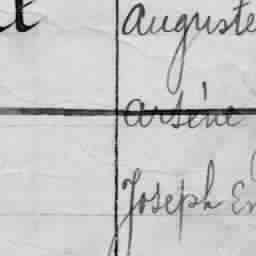 Auguste
Arsène
Joseph